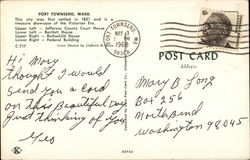 PORT TOWNSEND, WASH.
This city was first settled in 1851 and is a
treasure storehouse of the Victorian Era.
Upper Left — Jefferson County Court House
Lower Left — Bartlett House
Upper Right — Rothschild House
Lower Right — Federal Building
C-717
PORT TOWNSEND, WA
MAY
1968
POST CARD
Address
Hi Mary
thought I would
send you a card
on this Beautiful day
Just thinking of you
Geo
Mary B Long
Box 256
North Bend
Washington 98045
K